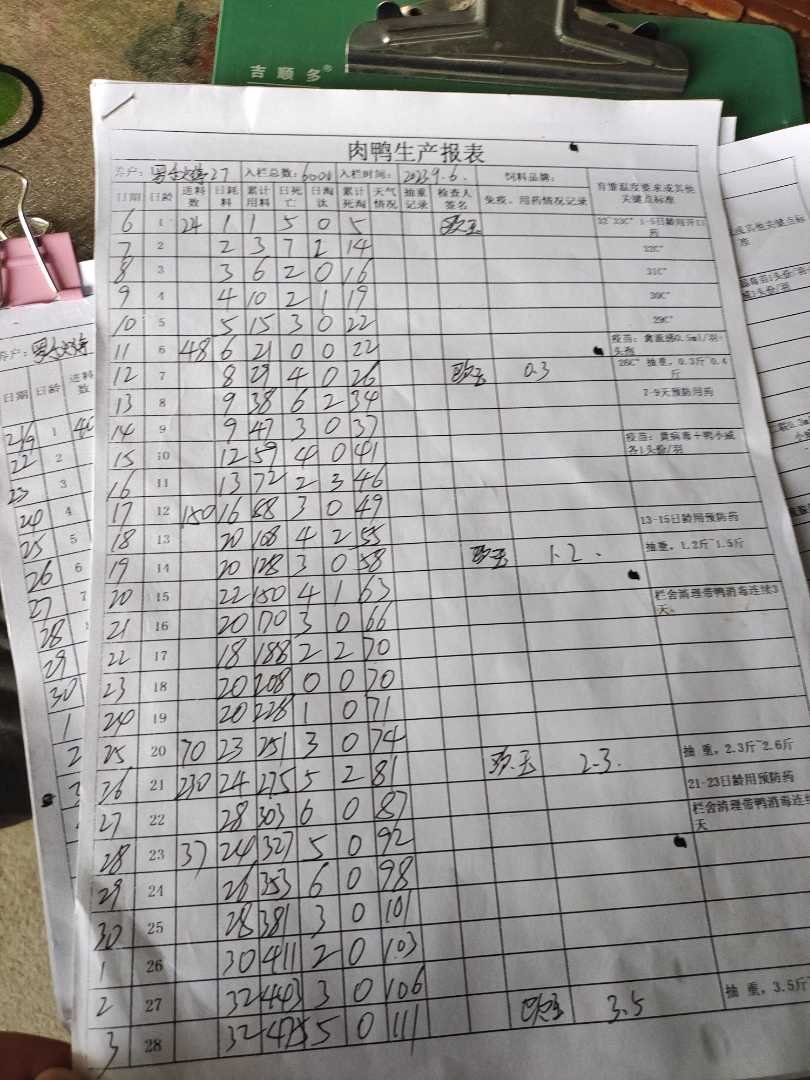 吉顺多®
肉鸭生产报表
养户: 27 入栏总数: 6000 入栏时间: 2023.9.6. 饲料品牌:
日期 日龄 进料数 日耗料 累计用料 日死亡 日淘汰 累计死淘 天气情况 抽重记录 检查人签名 免疫、用药情况记录 育雏温度要求或其他关键点标准
6 1 24 1 1 5 0 5 32~33C° 1-5日龄用开口药
7 2 2 3 7 2 14 32C°
8 3 3 6 2 0 16 31C°
9 4 4 10 2 1 19 30C°
10 5 5 15 3 0 22 29C°
11 6 48 6 21 0 0 22 疫苗: 禽流感0.5ml/羽·头剂
12 7 8 29 4 0 26 0.3 28C° 抽重, 0.3斤~0.4斤
13 8 9 38 6 2 34 7-9天预防用药
14 9 9 47 3 0 37
15 10 12 59 4 0 41 疫苗: 黄病毒+鸭小减各1头份/羽
16 11 13 72 2 3 46
17 12 150 16 88 3 0 49
18 13 20 108 4 2 55 13-15日龄用预防药
19 14 20 128 3 0 58 1.2. 抽重, 1.2斤~1.5斤
20 15 22 150 4 1 63
21 16 20 170 3 0 66 栏舍清理带鸭消毒连续3天。
22 17 18 188 2 2 70
23 18 20 208 0 0 70
24 19 20 228 1 0 71
25 20 70 23 251 3 0 74
26 21 230 24 275 5 2 81 2.3. 抽 重, 2.3斤~2.6斤
27 22 28 303 6 0 87 21-23日龄用预防药
28 23 37 24 327 5 0 92 栏舍清理带鸭消毒连续天
29 24 26 353 6 0 98
30 25 28 381 3 0 101
1 26 30 411 2 0 103
2 27 32 443 3 0 106
3 28 32 475 5 0 111 3.5 抽 重, 3.5斤~
养户:
日期 日龄 进料数
21/9 1
22 2
23 3
24 4
25 5
26 6
27 7
28
29
30
1
2